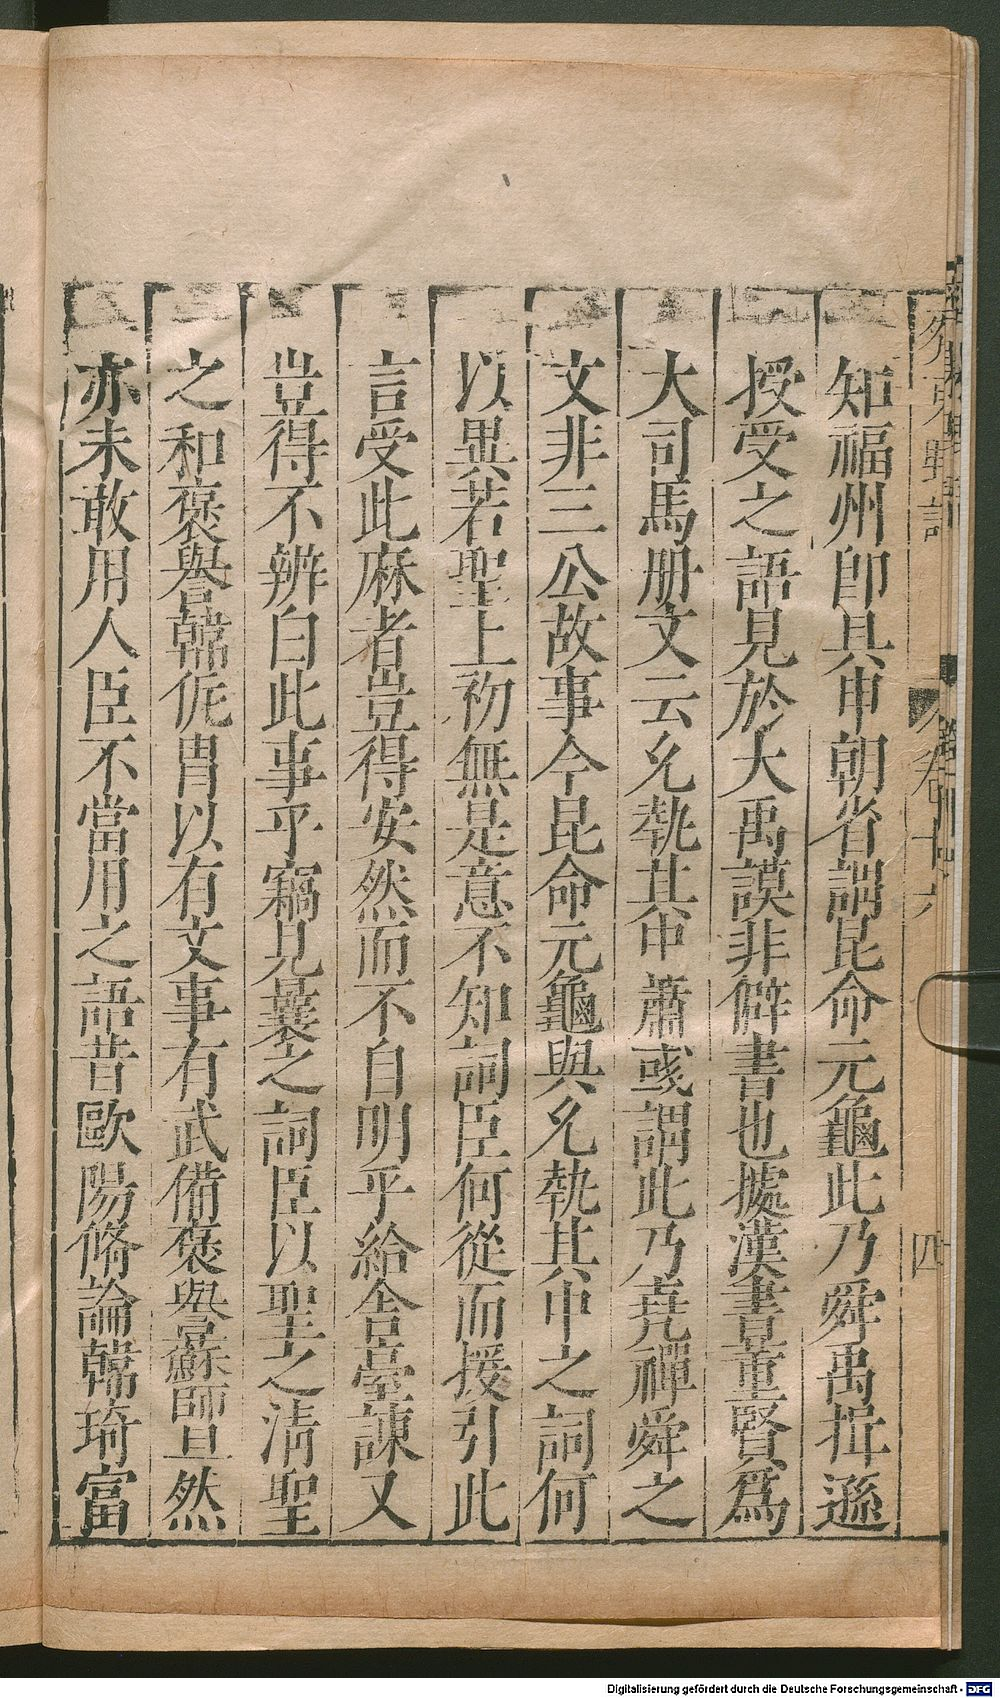 知福州即具申朝省謂昆命元龜此乃舜禹揖遜
授受之語見於大禹謨非僻書也據漢書董賢爲
大司馬册文云允執其中蕭彧謂此乃堯禪舜之
文非三公故事今昆命元龜與允執其中之詞何
以異若聖上初無是意不知詞臣何從而援引此
言受此麻者豈得安然而不自明乎給舍臺諫又
豈得不辨白此事乎竊見曩之詞臣以聖之清聖
之和褒譽韓侂胄以有文事有武備褒譽蘇師旦然
亦未敢用人臣不當用之語昔歐陽脩論韓琦富
四
Digitalisierung gefördert durch die Deutsche Forschungsgemeinschaft - DFG